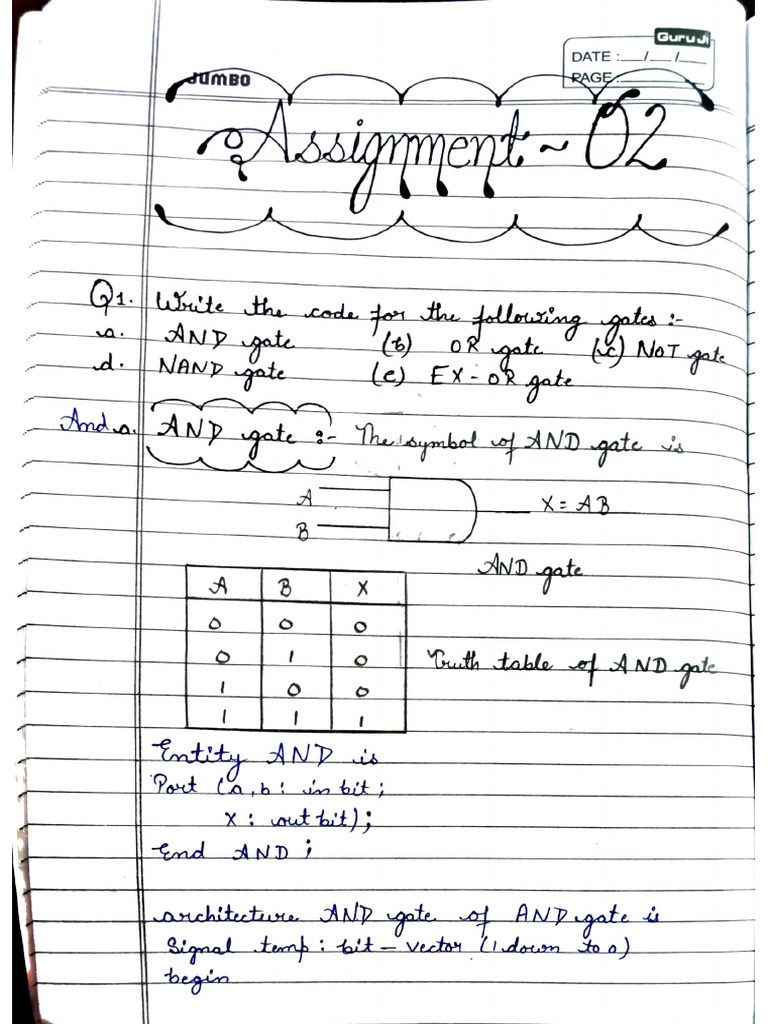 Guru Ji
DATE : __/__/__
PAGE :
JUMBO
Assignment ~ 02
Q1. Write the code for the following gates :-
a. AND gate (b) OR gate (c) NOT gate
d. NAND gate (e) EX-OR gate
And a. AND gate :- The symbol of AND gate is
A
B
X = AB
AND gate
A B X
0 0 0
0 1 0
1 0 0
1 1 1
Truth table of AND gate
Entity AND is
Port (a, b : in bit ;
X : out bit) ;
End AND ;
architecture AND gate of AND gate is
Signal temp : bit - vector (1 down to 0)
begin